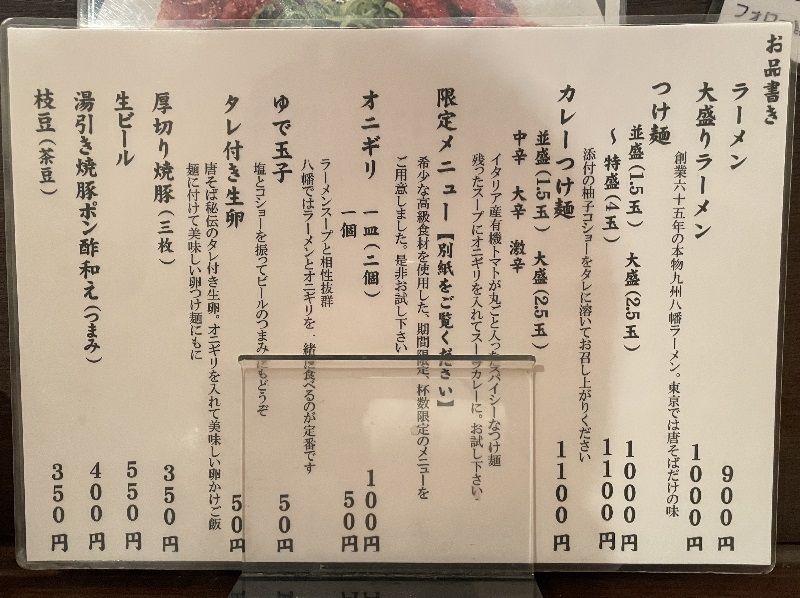 フォロ
お品書き
ラーメン 900円
大盛りラーメン 1000円
創業六十五年の本物九州八幡ラーメン。東京では唐そばだけの味
つけ麺
並盛(1.5玉) 大盛(2.5玉) 1000円
～特盛(4玉) 1100円
添付の柚子コショーをタレに溶いてお召し上がりください
カレーつけ麺 1100円
並盛(1.5玉) 大盛(2.5玉)
中辛 大辛 激辛
イタリア産有機トマトが丸ごと入ったスパイシーなつけ麺
残ったスープにオニギリを入れてスープカレーに。お試し下さい。
限定メニュー【別紙をご覧ください】
希少な高級食材を使用した、期間限定、杯数限定のメニューを
ご用意しました。是非お試し下さい
オニギリ 一皿(二個) 100円
一個 50円
ラーメンスープと相性抜群
八幡ではラーメンとオニギリを一緒に食べるのが定番です
ゆで玉子 50円
塩とコショーを振ってビールのつまみにもどうぞ
タレ付き生卵 50円
唐そば秘伝のタレ付き生卵。オニギリを入れて美味しい卵かけご飯
麺に付けて美味しい卵つけ麺にもに
厚切り焼豚(三枚) 350円
生ビール 550円
湯引き焼豚ポン酢和え(つまみ) 400円
枝豆(茶豆) 350円